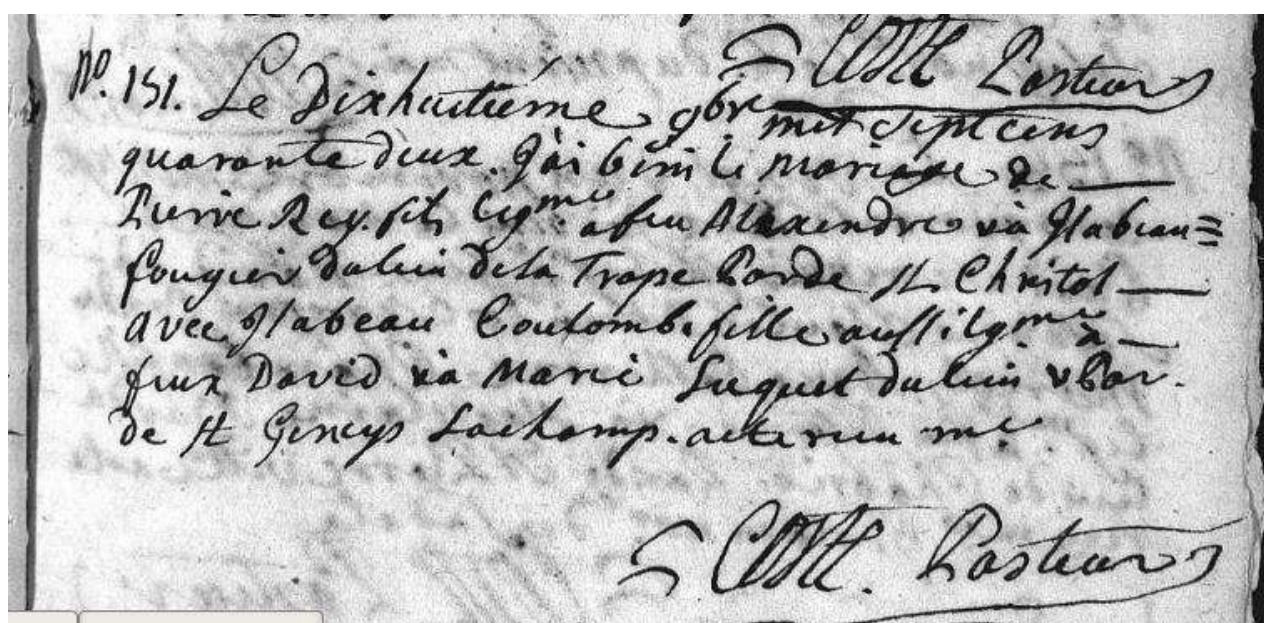 Coste Pasteur
No. 151. Le Dixhuitiéme 9bre mil sept cens
quarante deux. J'ai béni le mariage de
Pierre Rey. fils légme a feu Alexandre & à Isabeau =
fougier du lieu de la Trope Par de St Christol
avec Isabeau Coulomb. fille aussi légme à
feux David & à Marie Suquet du lieu & Par.
de St Geneys Lachamp. acte reçu me
Coste. Pasteur